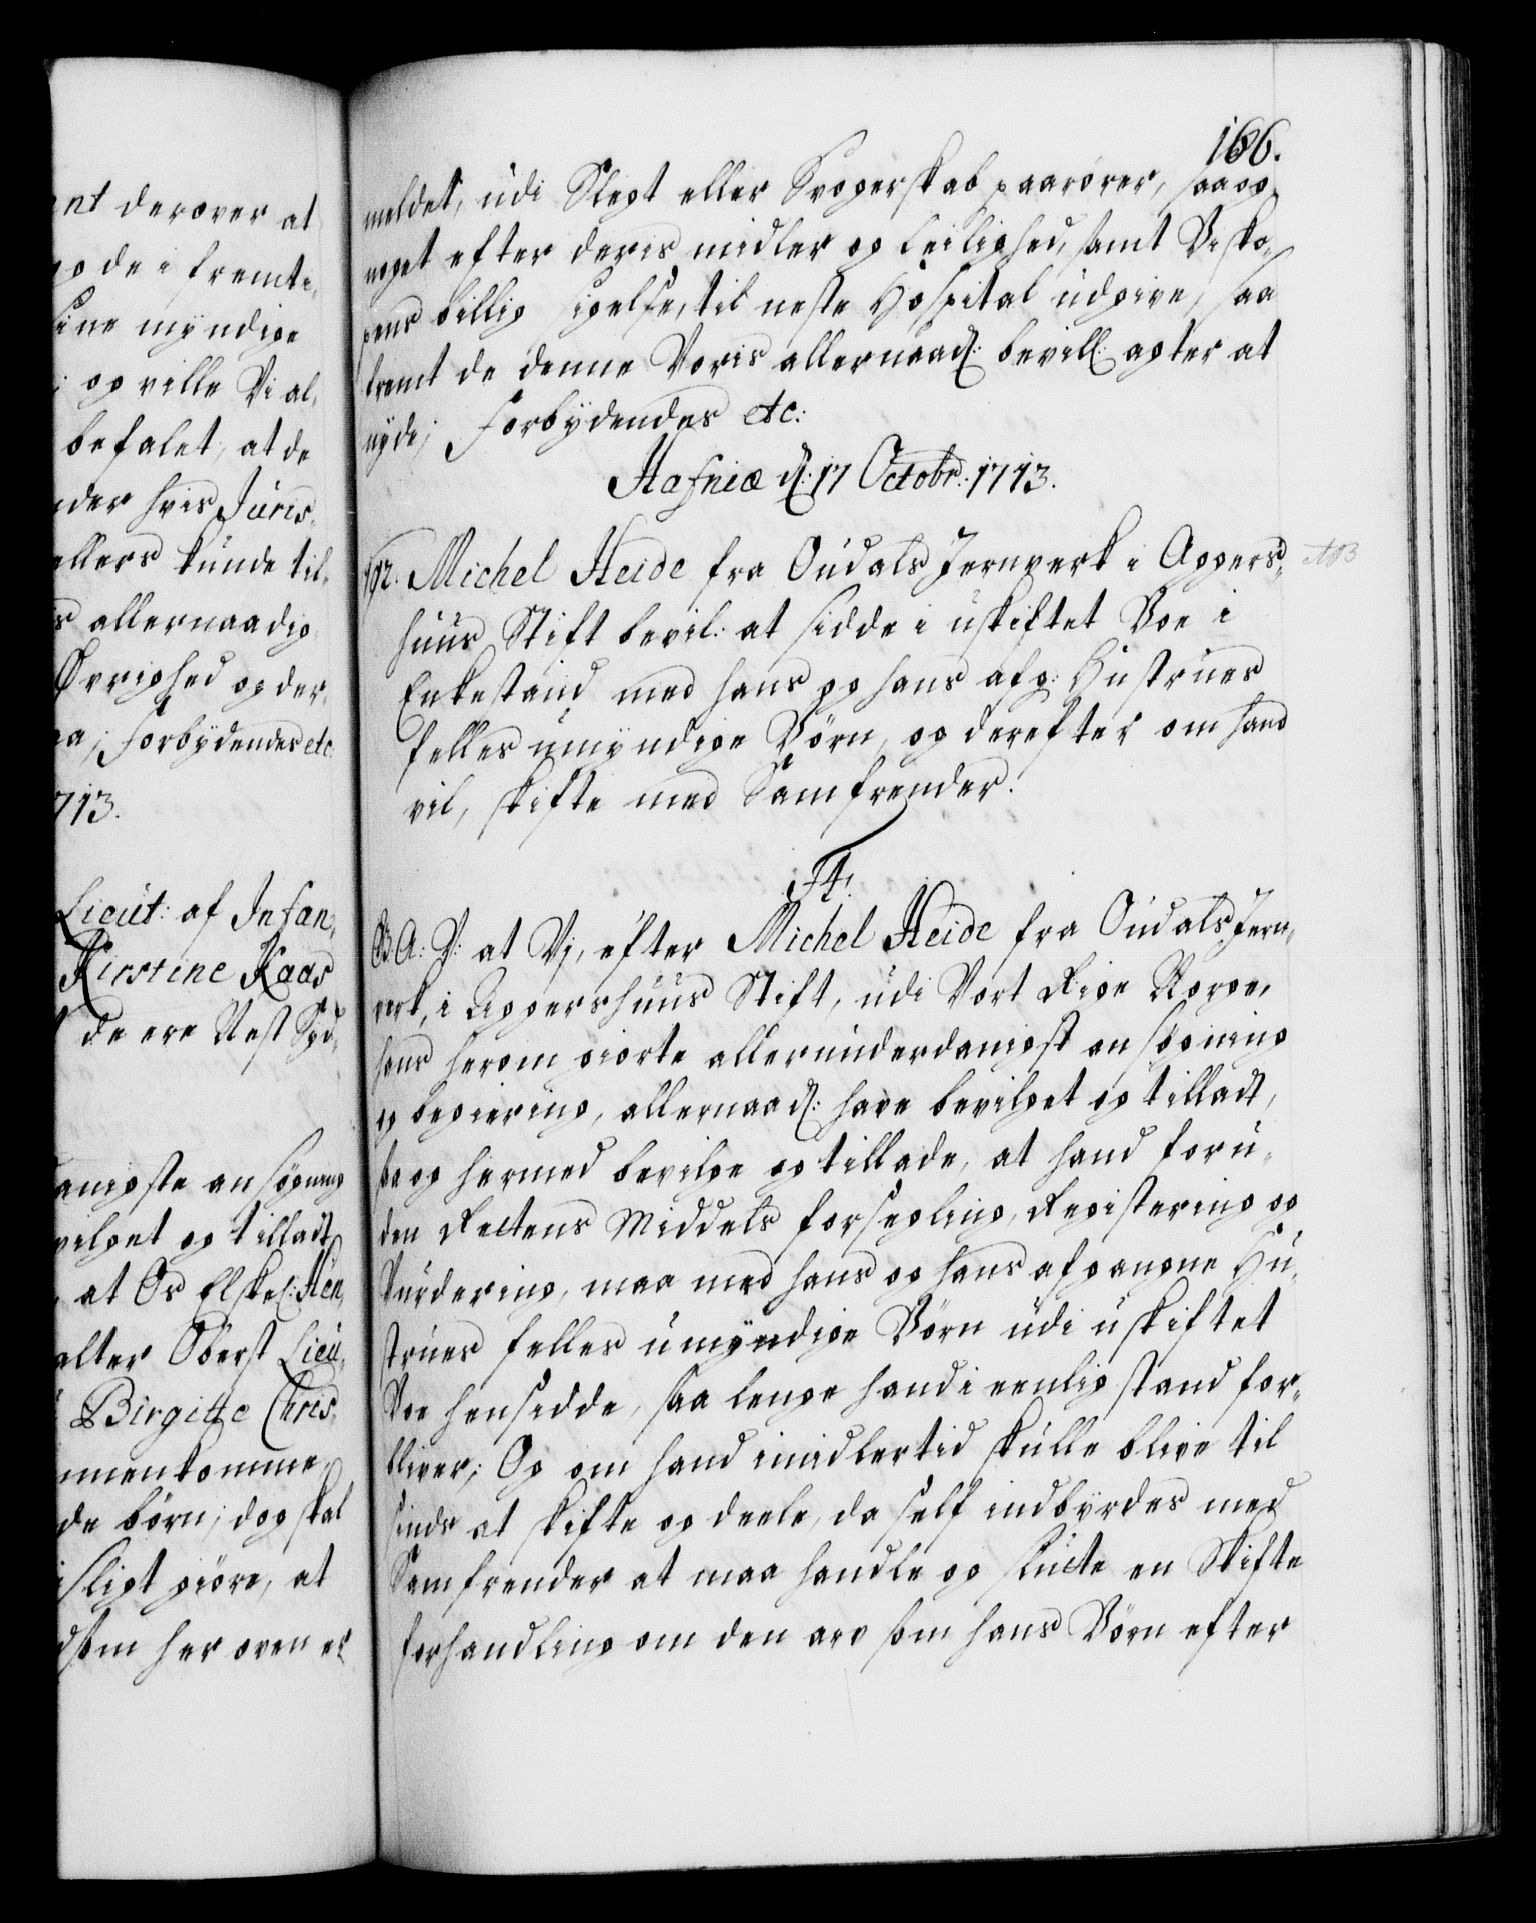 ent derover at
og de i fremti-
sine myndige
; og ville Vi al-
befalet, at de
under hvis Juris-
ellers kunde til-
s allernaadig
Øvrighed og der-
aa; Forbydendes etc
713.
Lieut: af Infan-
Kirstine Kaas
de ere Nest Syd-
danigste ansøgning
vilget og tilladt,
, at Os Elskel: Hen-
alter Oberst Lieu-
Birgitte Chris-
mmenkomme,
de børn; dog skal
isligt giöre, at
dsom her oven er
166.
meldet, udi Slegt eller Svogerskab paarører, saa og
noget efter deris midler og leilighed, samt Bisko-
pens billig sigelse, til neste Hospital udgive, saa
fremt de denne Voris allernaad: bevill: agter at
nyde; Forbydendes etc:
Hafniæ d: 17 Octobr: 1713.
Gr. Michel Heide fra Oudals Jernverk i Aggers-
huus Stift bevil: at sidde i uskiftet Boe i
Enkestand med hans og hans afg: Hustrues
felles umyndige Börn, og derefter om hand
vil, skifte med Samfrender.
F4.
G. A: V: at Vj, efter Michel Heide fra Oudals Jern-
verk, i Aggershuus Stift, udi Vort Rige Norge,
hans herom giorte allerunderdanigst ansøgning
og begiering, allernaad: have bevilget og tilladt,
saa og hermed bevilge og tillade, at hand foru-
den Rettens Middels forsegling, Registering og
Vurdering, maa med hans og hans afgangne Hu-
strues felles umyndige Börn udi uskiftet
Boe hensidde, saa lenge hand i eenlig stand for-
bliver; Og om hand imidlertid skulle blive til
sinds at skifte og deele, da self indbyrdes med
Samfrender at maa handle og slutte en Skifte
forhandling om den arv som hans Börn efter